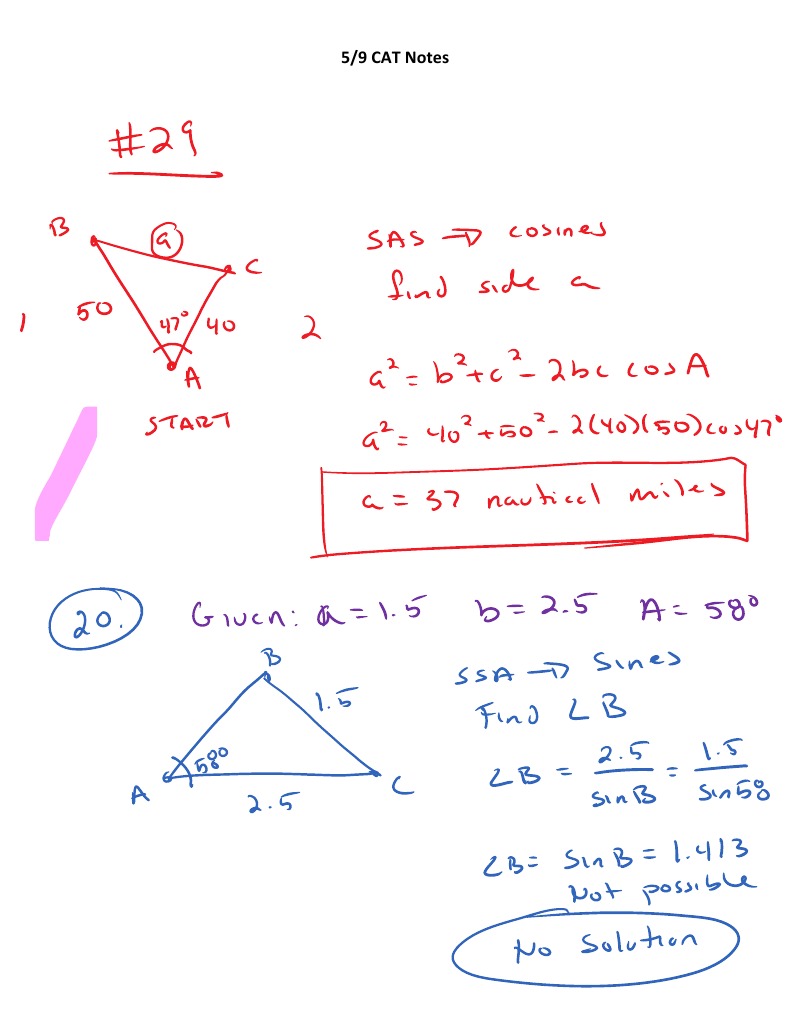 5/9 CAT Notes
#29
B
a
C
50
47°
40
A
START
1
2
SAS → cosines
find side a
a² = b² + c² - 2bc cos A
a² = 40² + 50² - 2(40)(50) cos 47°
a = 37 nautical miles
20.
Given: a = 1.5 b = 2.5 A = 58°
B
1.5
58°
A
2.5
C
SSA → Sines
Find ∠B
∠B = 2.5/sin B = 1.5/sin 58
∠B = sin B = 1.413
Not possible
No Solution